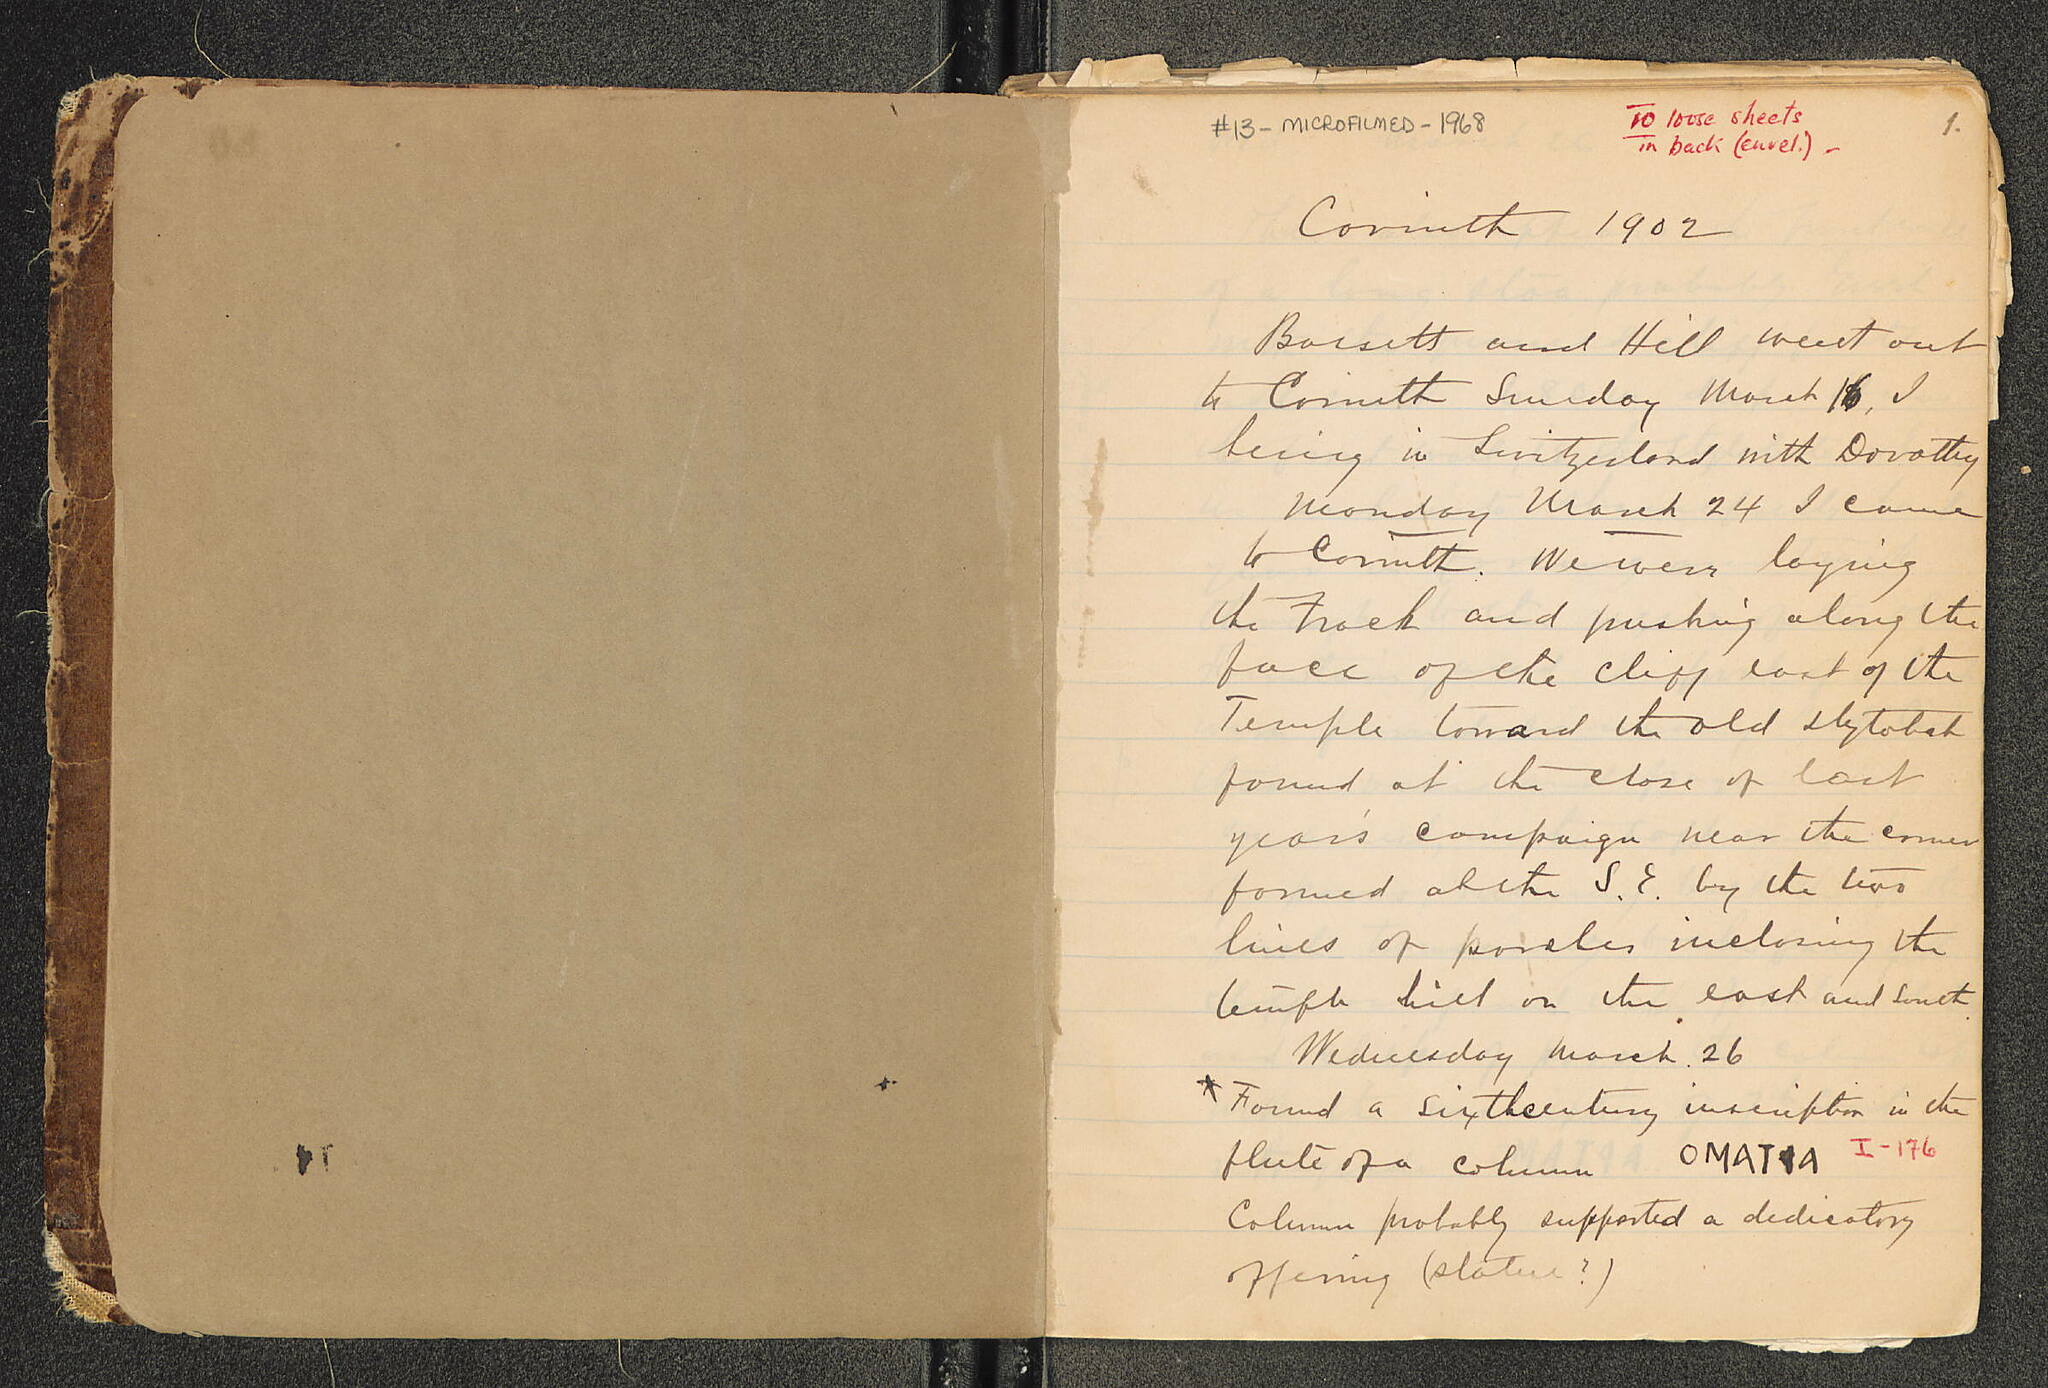 #13 - MICROFILMED - 1968
10 loose sheets
in back (envel.) -
1.
Corinth 1902
Bassett and Hill went out
to Corinth Sunday March 16, I
being in Switzerland with Dorothy
Monday March 24 I came
to Corinth. We were laying
the track and pushing along the
face of the cliff east of the
Temple toward the old stylobat
found at the close of last
year's campaign near the corner
formed at the S.E. by the two
lines of poros inclosing the
temple hill on the east and south.
Wednesday March 26
* Found a sixth century inscription in the
flute of a column OMATIA I-176
Column probably supported a dedicatory
offering (statue?)